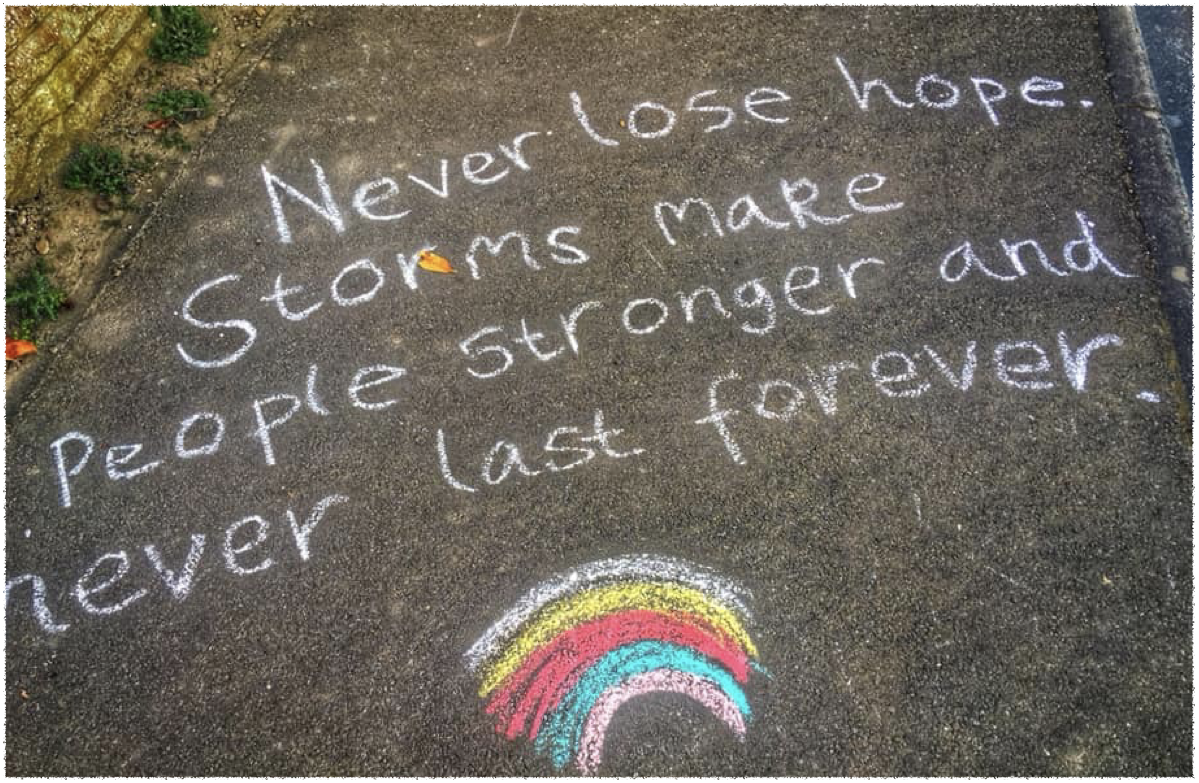 Never lose hope.
Storms make
people stronger and
never last forever.